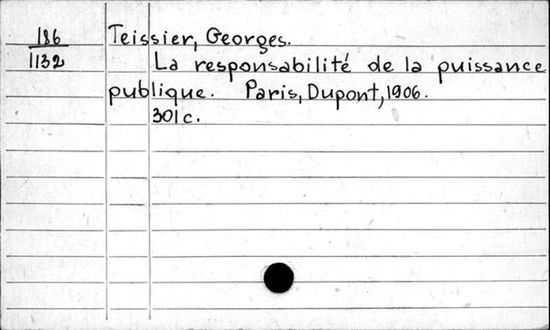 186
1132
Teissier, Georges.
La responsabilité de la puissance
publique. Paris, Dupont, 1906.
301 c.